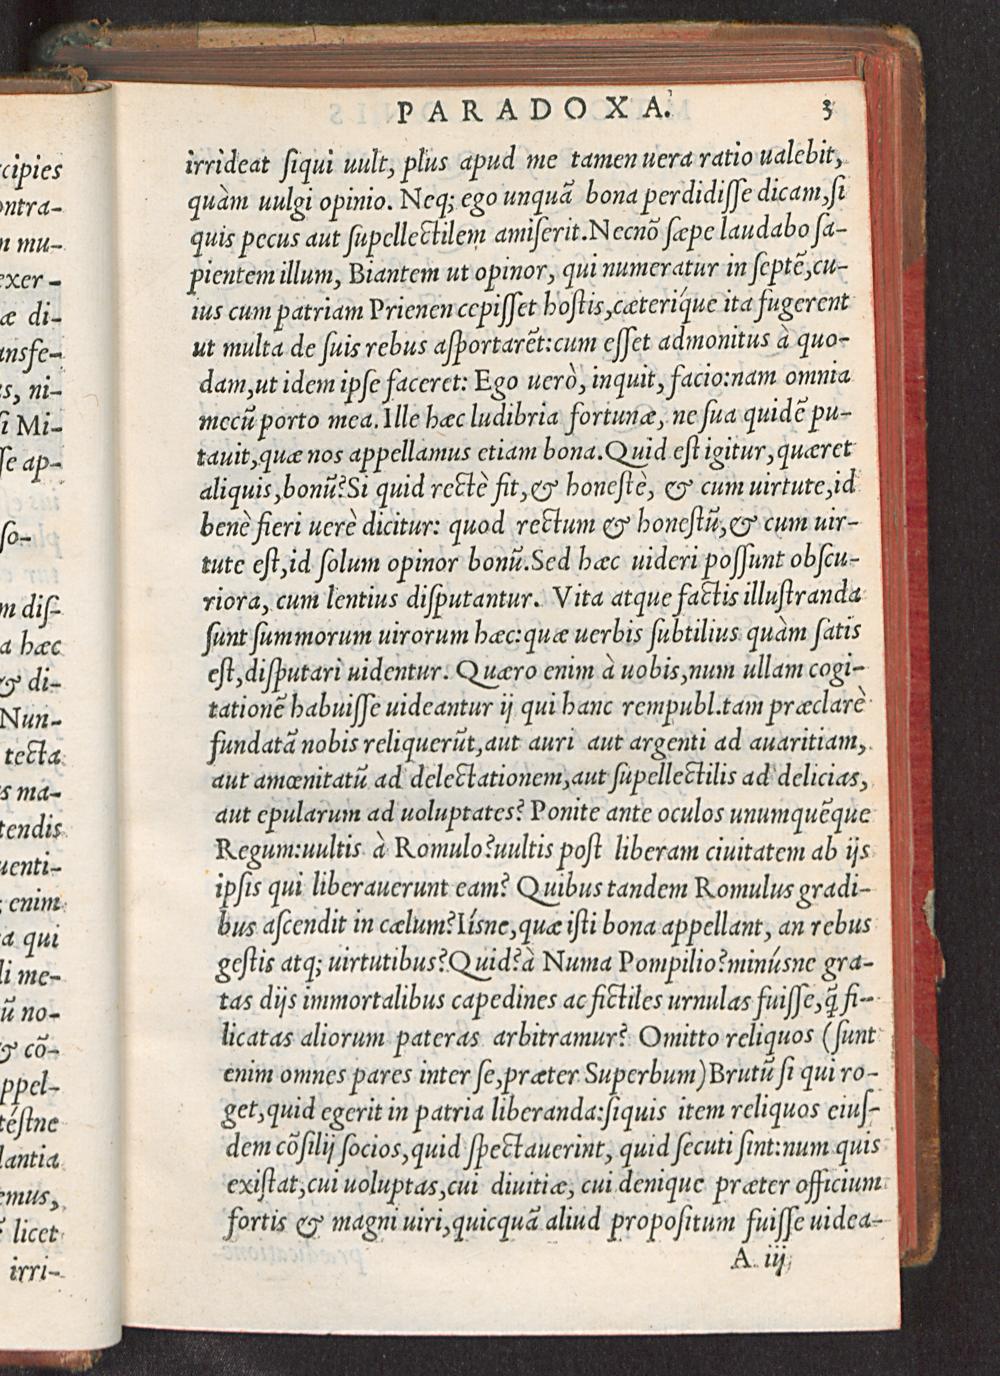 PARADOXA. 3
irrideat siqui uult, plus apud me tamen uera ratio ualebit,
quàm uulgi opinio. Neq; ego unquã bona perdidisse dicam, si
quis pecus aut supellectilem amiserit. Necnõ sæpe laudabo sa-
pientem illum, Biantem ut opinor, qui numeratur in septẽ, cu-
ius cum patriam Prienen cepisset hostis, cæteríque ita fugerent
ut multa de suis rebus asportarẽt: cum esset admonitus à quo-
dam, ut idem ipse faceret: Ego uerò, inquit, facio: nam omnia
mecũ porto mea. Ille hæc ludibria fortunæ, ne sua quidẽ pu-
tauit, quæ nos appellamus etiam bona. Quid est igitur, quæret
aliquis, bonũ? Si quid rectè fit, & honestè, & cum uirtute, id
benè fieri uerè dicitur: quod rectum & honestũ, & cum uir-
tute est, id solum opinor bonũ. Sed hæc uideri possunt obscu-
riora, cum lentius disputantur. Vita atque factis illustranda
sunt summorum uirorum hæc: quæ uerbis subtilius quàm satis
est, disputari uidentur. Quæro enim à uobis, num ullam cogi-
tationẽ habuisse uideantur ij qui hanc rempubl. tam præclarè
fundatã nobis reliquerũt, aut auri aut argenti ad auaritiam,
aut amœnitatũ ad delectationem, aut supellectilis ad delicias,
aut epularum ad uoluptates? Ponite ante oculos unumquẽque
Regum: uultis à Romulo? uultis post liberam ciuitatem ab ijs
ipsis qui liberauerunt eam? Quibus tandem Romulus gradi-
bus ascendit in cælum? Iísne, quæ isti bona appellant, an rebus
gestis atq; uirtutibus? Quid? à Numa Pompilio? minúsne gra-
tas dijs immortalibus capedines ac fictiles urnulas fuisse, q̃ fi-
licatas aliorum pateras arbitramur? Omitto reliquos (sunt
enim omnes pares inter se, præter Superbum) Brutũ si qui ro-
get, quid egerit in patria liberanda: siquis item reliquos eius-
dem cõsilij socios, quid spectauerint, quid secuti sint: num quis
existat, cui uoluptas, cui diuitiæ, cui denique præter officium
fortis & magni uiri, quicquã aliud propositum fuisse uidea-
A iij
cipies
ontra-
mu-
exer-
æ di-
ansfe-
s, ni-
i Mi-
se ap-
so-
m dis-
a hæc
& di-
Nun-
tecta
s ma-
tendis
uenti-
; enim
a qui
li me-
ũ no-
& cõ-
ppel-
téstne
lantia
emus,
licet
irri-